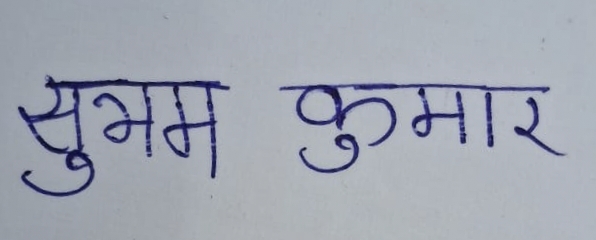 सुभम कुमार